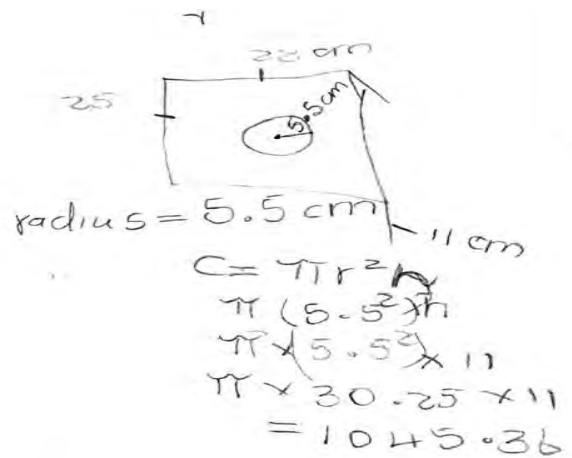 22 cm
25
5.5cm
radius = 5.5 cm
11 cm
C = πr²h
π (5.5²)h
π × (5.5²) × 11
π × 30.25 × 11
= 1045.36